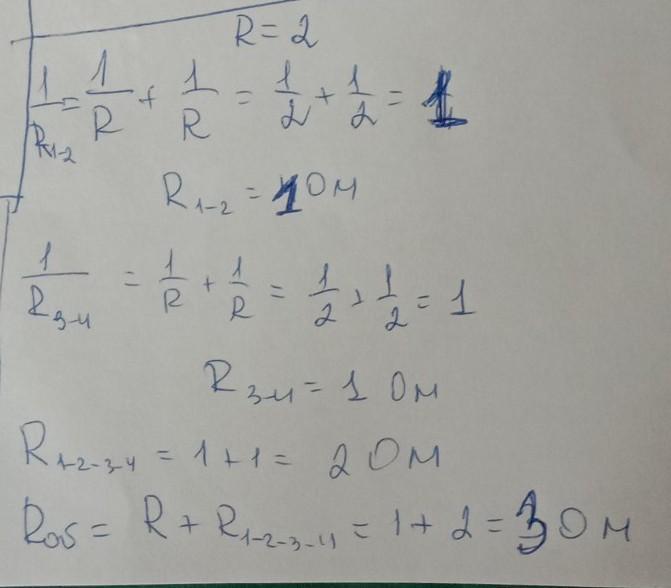 R = 2
1/R₁₋₂ = 1/R + 1/R = 1/2 + 1/2 = 1
R₁₋₂ = 1 Ом
1/R₃₋₄ = 1/R + 1/R = 1/2 + 1/2 = 1
R₃₋₄ = 1 Ом
R₁₋₂₋₃₋₄ = 1 + 1 = 2 Ом
Rоб = R + R₁₋₂₋₃₋₄ = 1 + 2 = 3 Ом